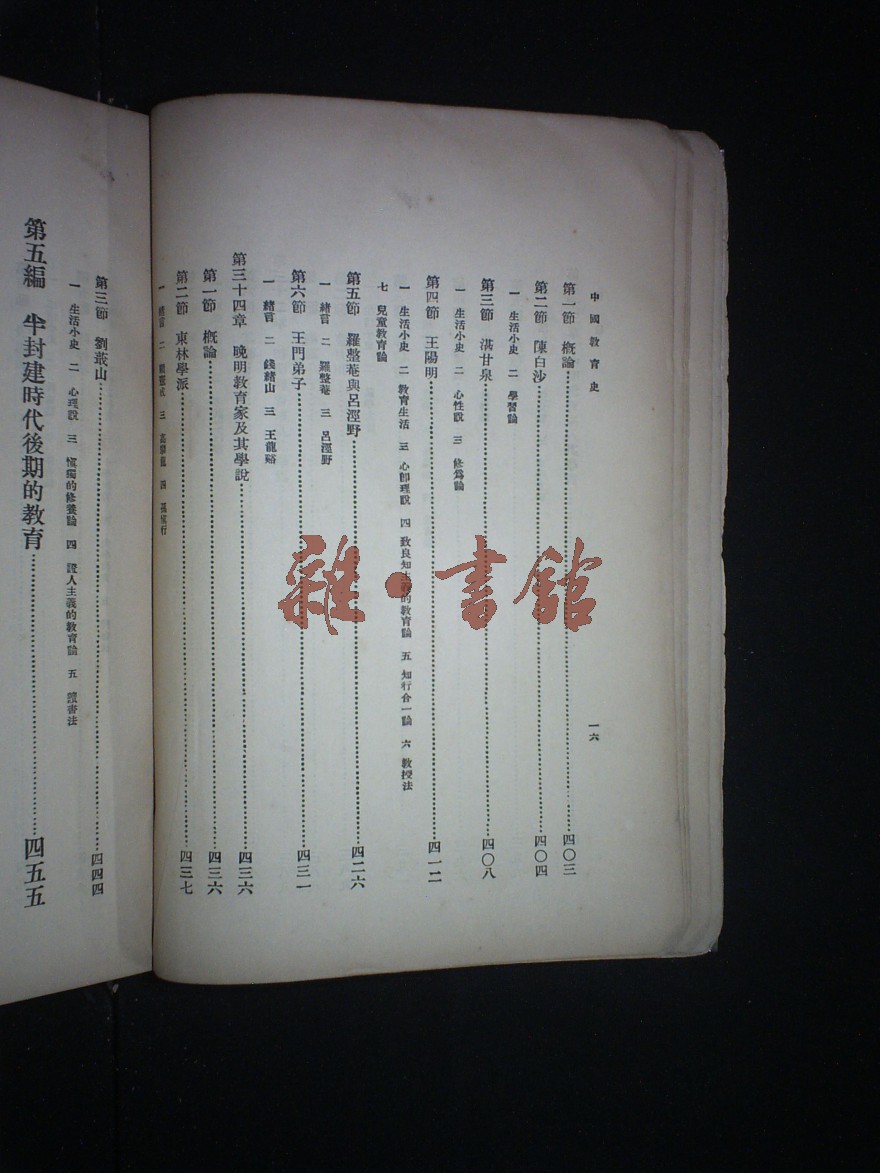 中國教育史
一六
第一節 概論 四〇三
第二節 陳白沙 四〇四
一 生活小史 二 學習論
第三節 湛甘泉 四〇八
一 生活小史 二 心性說 三 修爲論
第四節 王陽明 四一二
一 生活小史 二 教育生活 三 心卽理說 四 致良知主義的教育論 五 知行合一論 六 教授法
七 兒童教育論
第五節 羅整菴與呂涇野 四二六
一 緒言 二 羅整菴 三 呂涇野
第六節 王門弟子 四三一
一 緒言 二 錢緒山 三 王龍谿
第三十四章 晚明教育家及其學說 四三六
第一節 概論 四三六
第二節 東林學派 四三七
一 緒言 二 顧涇 三 高攀龍 四 孫 行
第三節 劉蕺山 四四四
一 生活小史 二 心理說 三 愼獨的修養論 四 證人主義的教育論 五 讀書法
第五編 半封建時代後期的教育 四五五
雜·書館